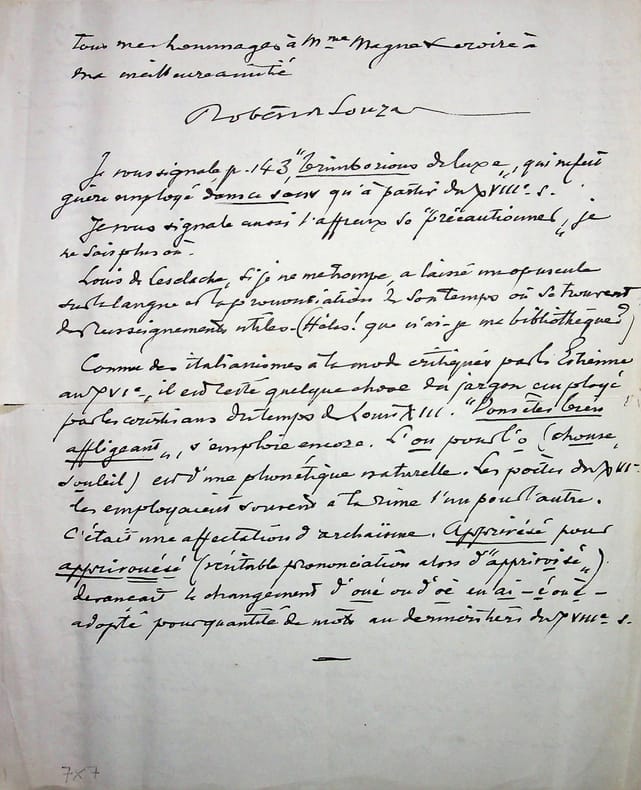 tous mes hommages à Mme Magne & croire à
ma meilleure amitié
Robert de Souza
Je vous signale p. 143 "brimborions de luxe", qui ne fut
guère employé dans ce sens qu'à partir du XVIIIe s.
Je vous signale aussi l'affreux se "précautionner", je
ne sais plus où.
Louis de Lesclache, si je ne me trompe, a laissé un opuscule
sur la langue et la prononciation de son temps où se trouvent
des renseignements utiles. (Hélas! que n'ai-je ma bibliothèque?)
Comme des italianismes à la mode critiqués par H. Estienne
au XVIe, il est resté quelque chose du jargon employé
par les courtisans du temps de Louis XIII. "Vous êtes bien
affligeant", s'emploie encore. L'ou pour l'o (chouse,
souleil) est d'une phonétique naturelle. Les poètes du XVIe
les employaient souvent à la rime l'un pour l'autre.
C'était une affectation d'archaïsme. Apprivésé pour
apprivouésé (véritable prononciation alors d'"apprivoisé")
devançait le changement d'oué ou d'oè en ai – é ou è –
adopté pour quantité de mots au dernier tiers du XVIIIe s.
7x7